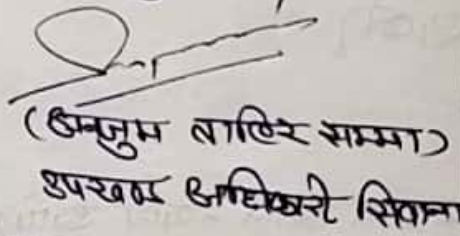 (अनजुम ताहिर सम्मा)
उपखण्ड अधिकारी सिवाना